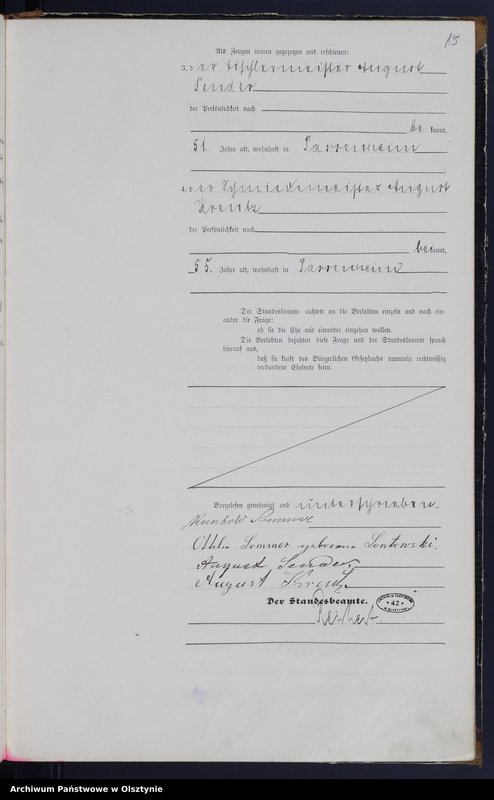 15
Als Zeugen waren zugezogen und erschienen:
3. der Tischlermeister August
Sender
der Persönlichkeit nach
be kannt,
51 Jahre alt, wohnhaft in Passenheim
;
4. der Schmiedemeister August
Kreutz
der Persönlichkeit nach
be kannt,
55. Jahre alt, wohnhaft in Passenheim
Der Standesbeamte richtete an die Verlobten einzeln und nach ein-
ander die Frage:
ob sie die Ehe mit einander eingehen wollen.
Die Verlobten bejahten diese Frage und der Standesbeamte sprach
hierauf aus,
daß sie kraft des Bürgerlichen Gesetzbuchs nunmehr rechtmäßig
verbundene Eheleute seien.
Vorgelesen genehmigt und unterschrieben.
Reinhold Sommer
Ottilie Sommer geborene Lontowski.
August Sender
August Kreutz
Der Standesbeamte.
42
Archiwum Państwowe w Olsztynie